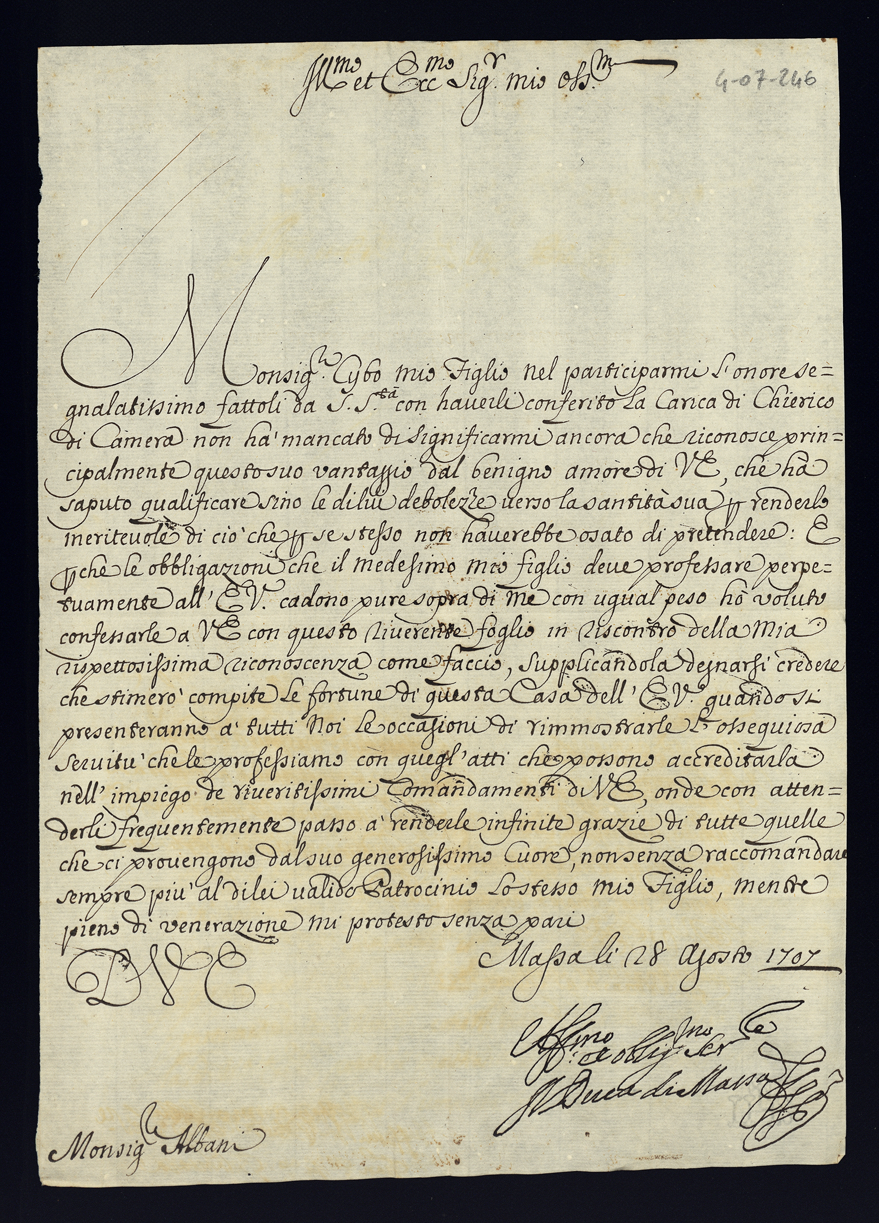 Ill.mo et Ecc.mo Sig.r mio oss.mo
4-07-246
Monsig.re Cybo mio Figlio nel participarmi L'onore se=
gnalatissimo fattoli da S. S.tà con haverli conferito La Carica di Chierico
di Camera non ha' mancato di significarmi ancora che riconosce prin=
cipalmente questo suo vantaggio dal benigno amore di VE, che hà
saputo qualificare sino le di lui debolezze verso la santità sua p renderlo
meritevole di ciò che p se stesso non haverebbe osato di pretendere: E
pche le obbligazioni che il medesimo mio figlio deve professare perpe=
tuamente all' EV. cadono pure sopra di me con ugual peso hò voluto
confessarle a VE con questo riverente foglio in riscontro della Mia
rispettosissima riconoscenza come faccio, supplicandola degnarsi credere
che stimerò compite Le fortune di questa Casa dell' EV. quando si
presenteranno à tutti Noi Le occasioni di rimmostrarle L'ossequiosa
servitu' che le professiamo con quegl'atti che possono accreditarla
nell' impiego de riveritissimi Comandamenti di VE, onde con atten=
derli frequentemente passo à renderle infinite grazie di tutte quelle
che ci provengono dal suo generosissimo Cuore, non senza raccomandare
sempre più al di lei valido Patrocinio Lo stesso mio Figlio, mentre
pieno di venerazione mi protesto senza pari
DVE
Massa li 28 Agosto 1707
Aff.mo et obblig.mo Ser.re
Il Duca di Massa
Monsig.re Albani